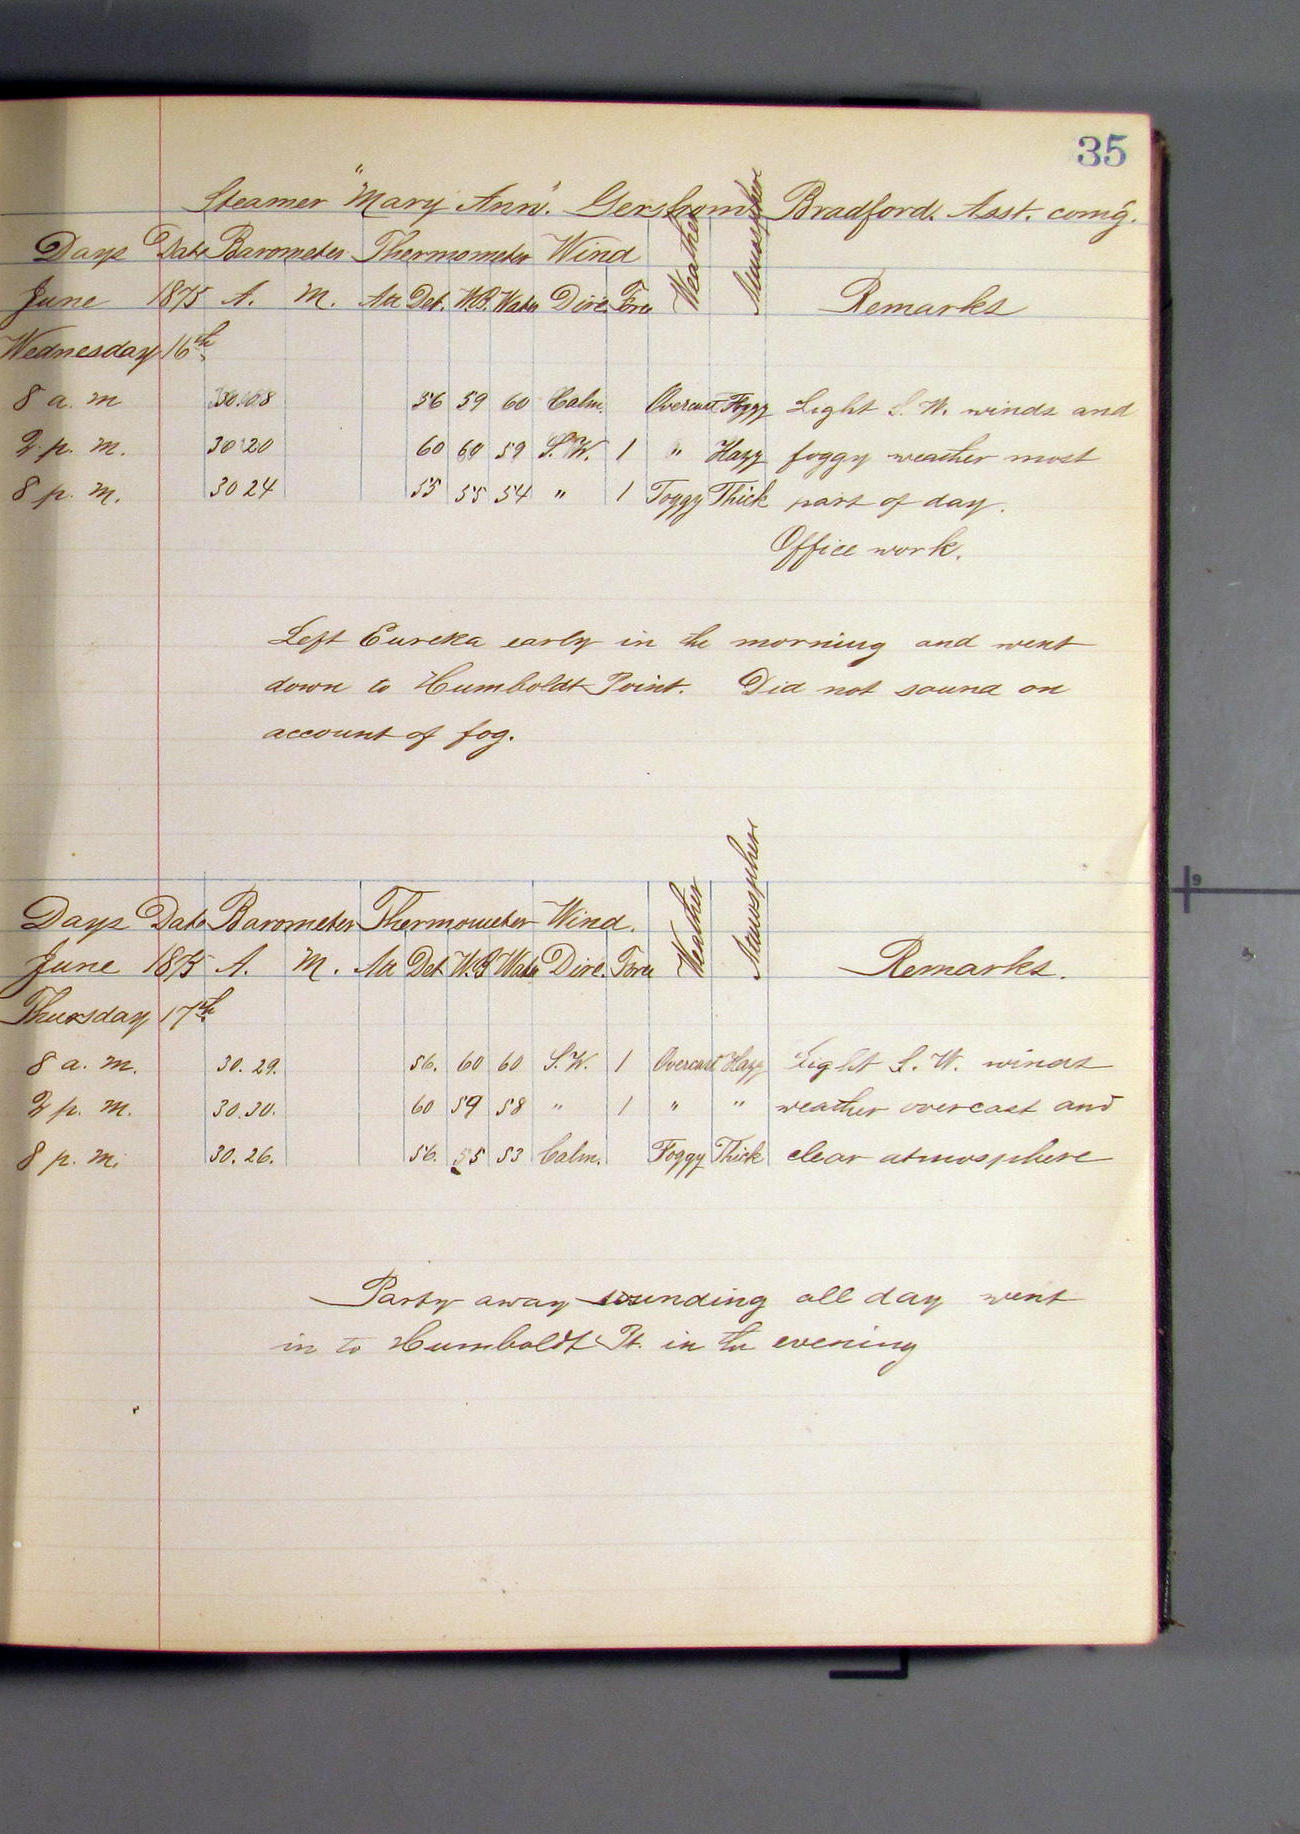 35
Steamer "Mary Ann". Gershom Bradford. Asst. comg.
Days Date Barometer Thermometer Wind Weather Atmosphere
June 1875 A. M. Att Det. W.B. Water Dire. Force Remarks
Wednesday 16th
8 a. m 56 59 60 Calm. Overcast Foggy Light S. W. winds and
2 p. m. 30 20 60 60 59 S. W. 1 " Hazy foggy weather most
8 p. m. 30 24 55 55 54 " 1 Foggy Thick part of day.
Office work.
Left Eureka early in the morning and went
down to Humboldt Point. Did not sound on
account of fog.
Days Date Barometer Thermometer Wind. Weather Atmosphere
June 1875 A. M. Att Det W.B Water Dire. Force Remarks.
Thursday 17th
8 a. m. 30. 29. 56. 60 60 S. W. 1 Overcast Hazy Light S. W. winds
2 p. m. 30. 30. 60 59 58 " 1 " " weather overcast and
8 p. m. 30. 26. 56. 55 53 Calm. Foggy Thick clear atmosphere
Party away sounding all day went
in to Humboldt Pt. in the evening
9